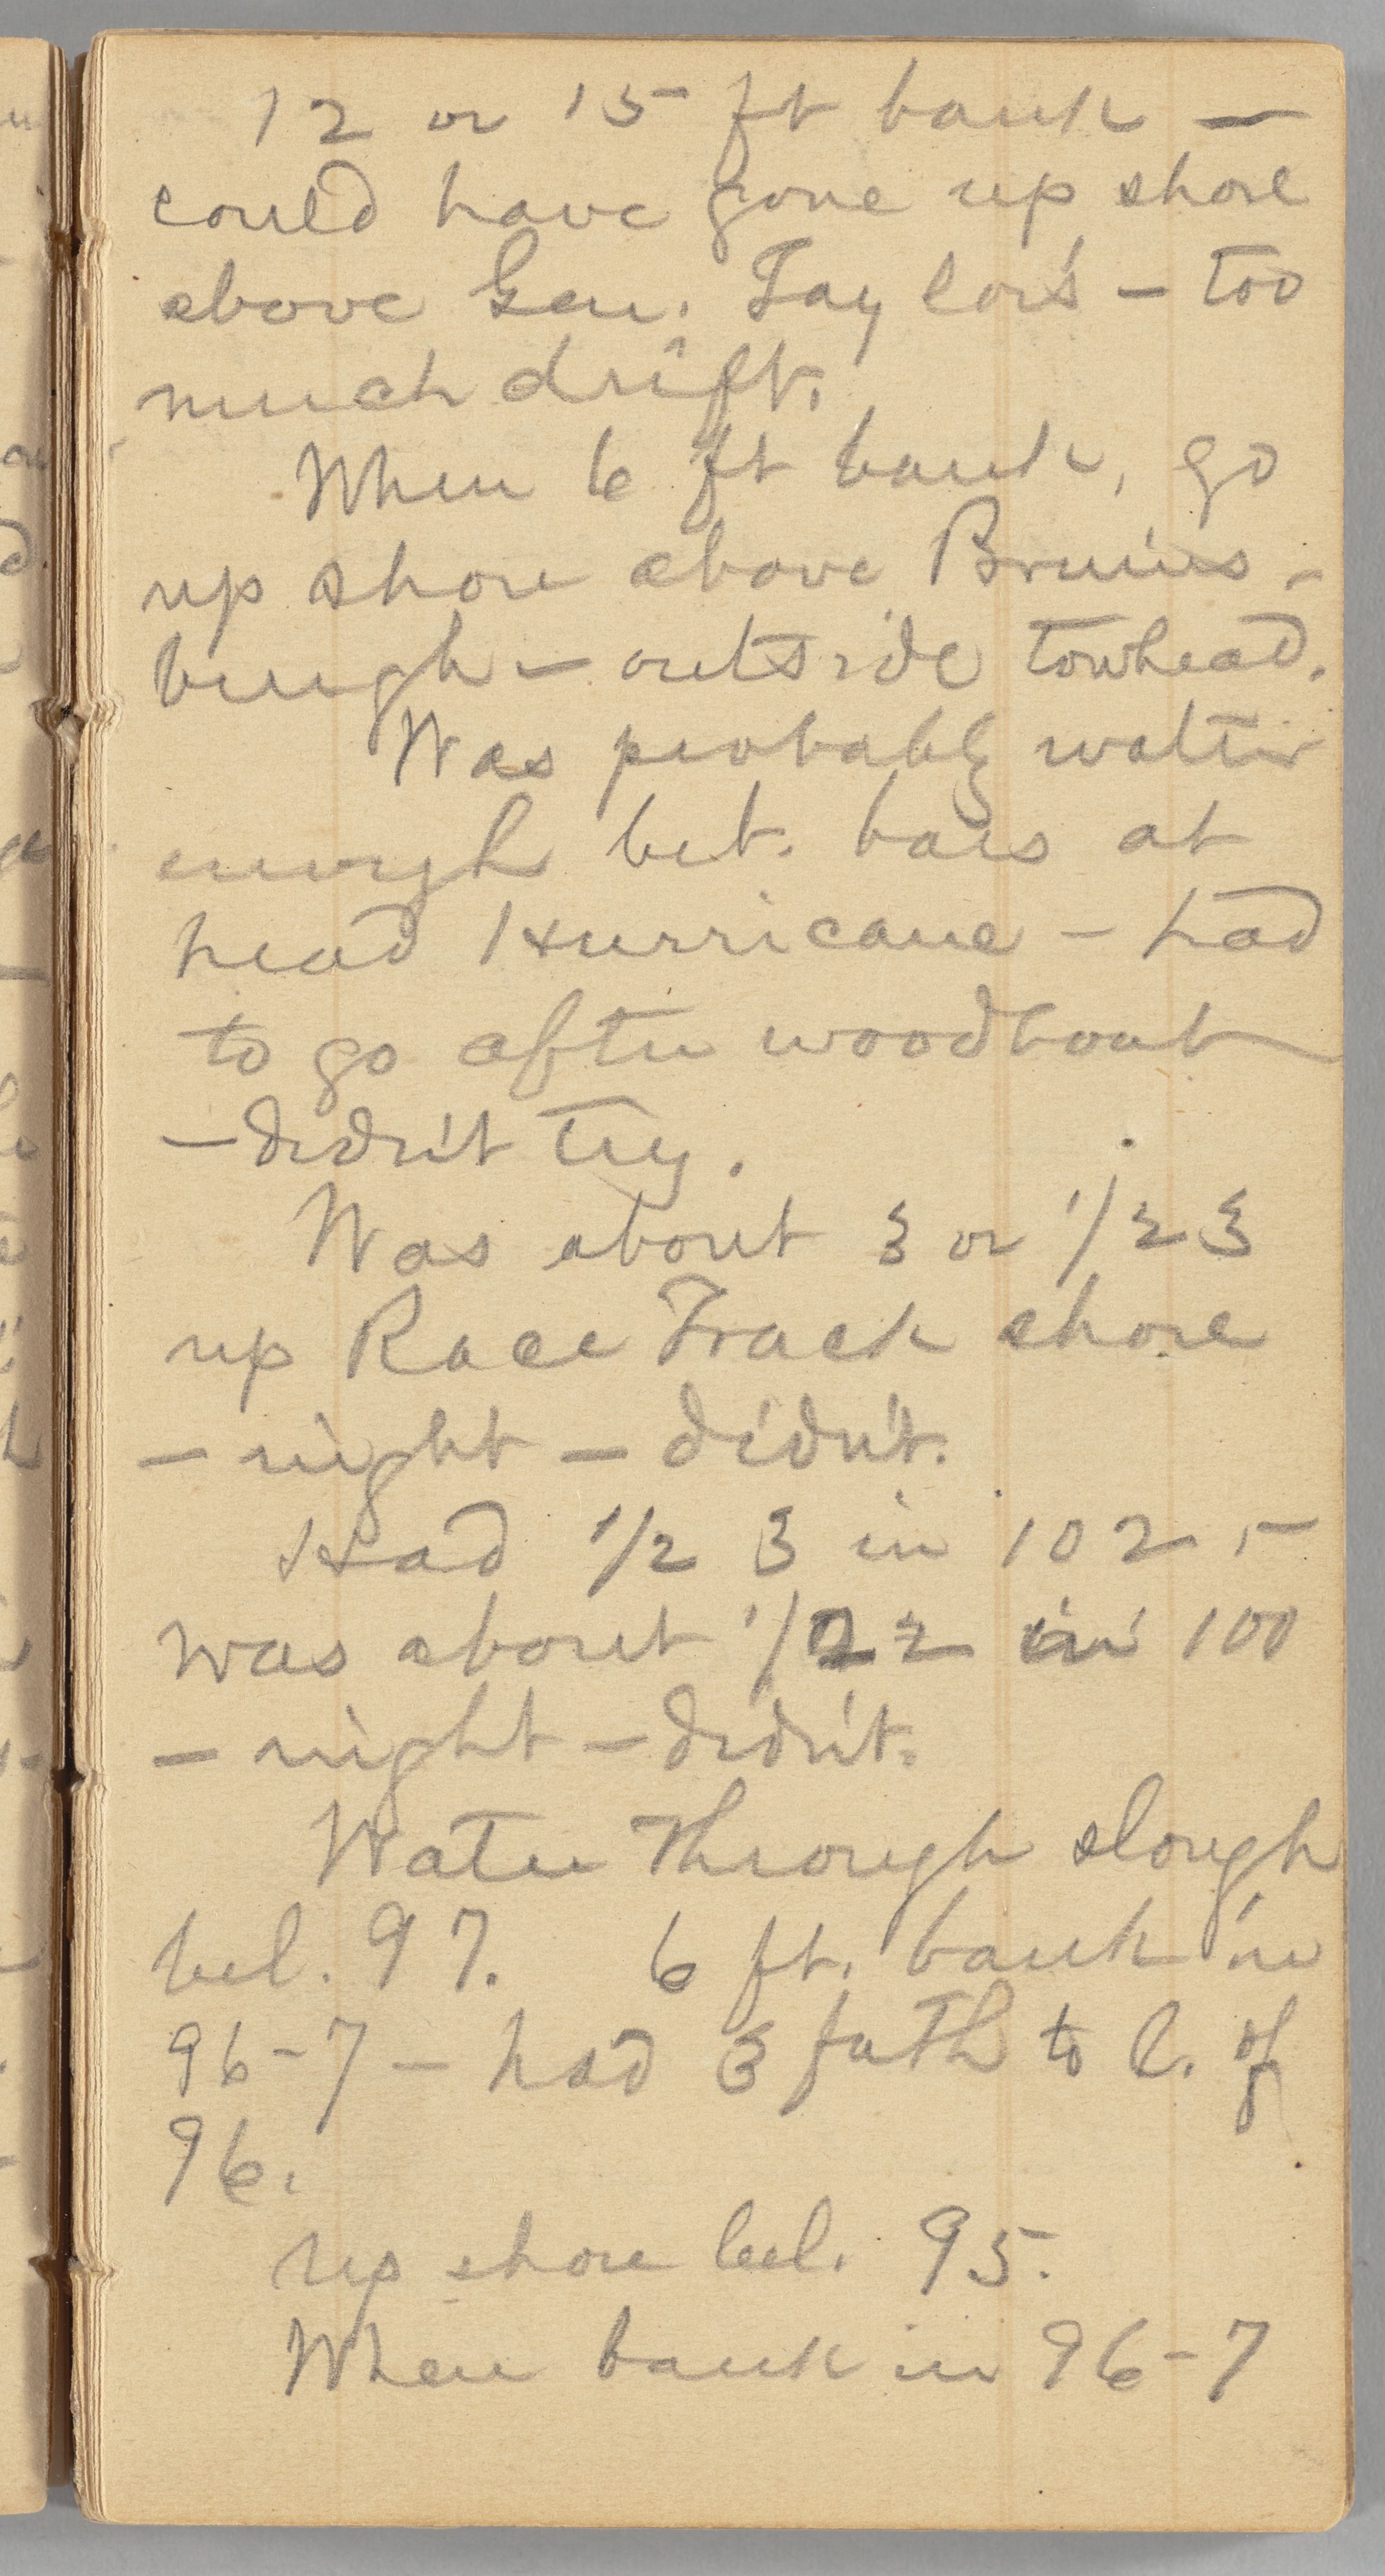 12 or 15 ft bank —
could have gone up shore
above Gen. Taylor's — too
much drift.
When 6 ft bank, go
up shore above Bruins-
burgh — outside towhead.
Was probably water
enough bet. bars at
head Hurricane — had
to go after woodboat
— didn't try.
Was about 3 or 1/2 3
up Race Track shore
— night — didn't.
Had 1/2 3 in 102, —
was about 1/2 2 in 100
— night — didn't.
Water through slough
bel. 97. 6 ft. bank in
96-7 — had 3 fath to l. of
96.
Up shore bel. 95.
When bank in 96-7